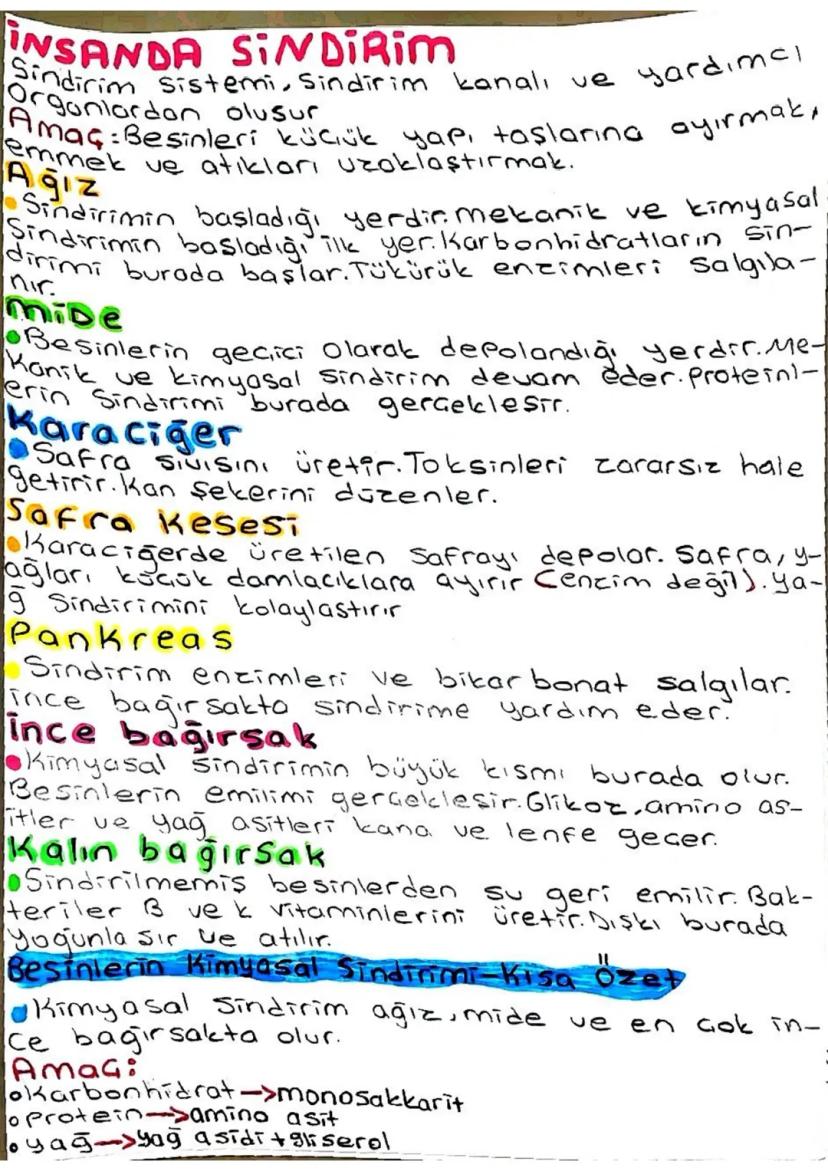 İNSANDA SİNDİRİM
Sindirim sistemi, Sindirim kanalı ve yardımcı
Organlardan oluşur
Amaç: Besinleri küçük yapı taşlarına ayırmak,
emmek ve atıkları uzaklaştırmak.
Ağız
• Sindirimin başladığı yerdir. mekanik ve kimyasal
Sindirimin başladığı ilk yer. Karbonhidratların sin-
dirimi burada başlar. Tükürük enzimleri salgıla-
nır.
MİDE
• Besinlerin geçici olarak depolandığı yerdir. Me-
kanik ve kimyasal sindirim devam eder. proteinl-
erin Sindirimi burada gerçekleşir.
Karaciğer
• Safra sıvısını üretir. Toksinleri zararsız hale
getirir. Kan şekerini düzenler.
Safra Kesesi
• Karaciğerde üretilen Safrayı depolar. Safra, y-
ağları küçük damlacıklara ayırır (enzim değil). ya-
ğ Sindirimini kolaylaştırır
Pankreas
• Sindirim enzimleri ve bikarbonat salgılar.
ince bağırsakta sindirime yardım eder.
İnce bağırsak
• Kimyasal sindirimin büyük kısmı burada olur.
Besinlerin emilimi gerçekleşir. Glikoz, amino as-
itler ve yağ asitleri kana ve lenfe geçer.
Kalın bağırsak
• Sindirilmemiş besinlerden su geri emilir. Bak-
teriler B ve k vitaminlerini üretir. Dışkı burada
yoğunlaşır ve atılır.
Besinlerin Kimyasal Sindirimi-Kısa Özet
• Kimyasal Sindirim ağız, mide ve en çok in-
ce bağırsakta olur.
Amaç:
• Karbonhidrat → monosakkarit
• protein → amino asit
• yağ → yağ asidi + gliserol